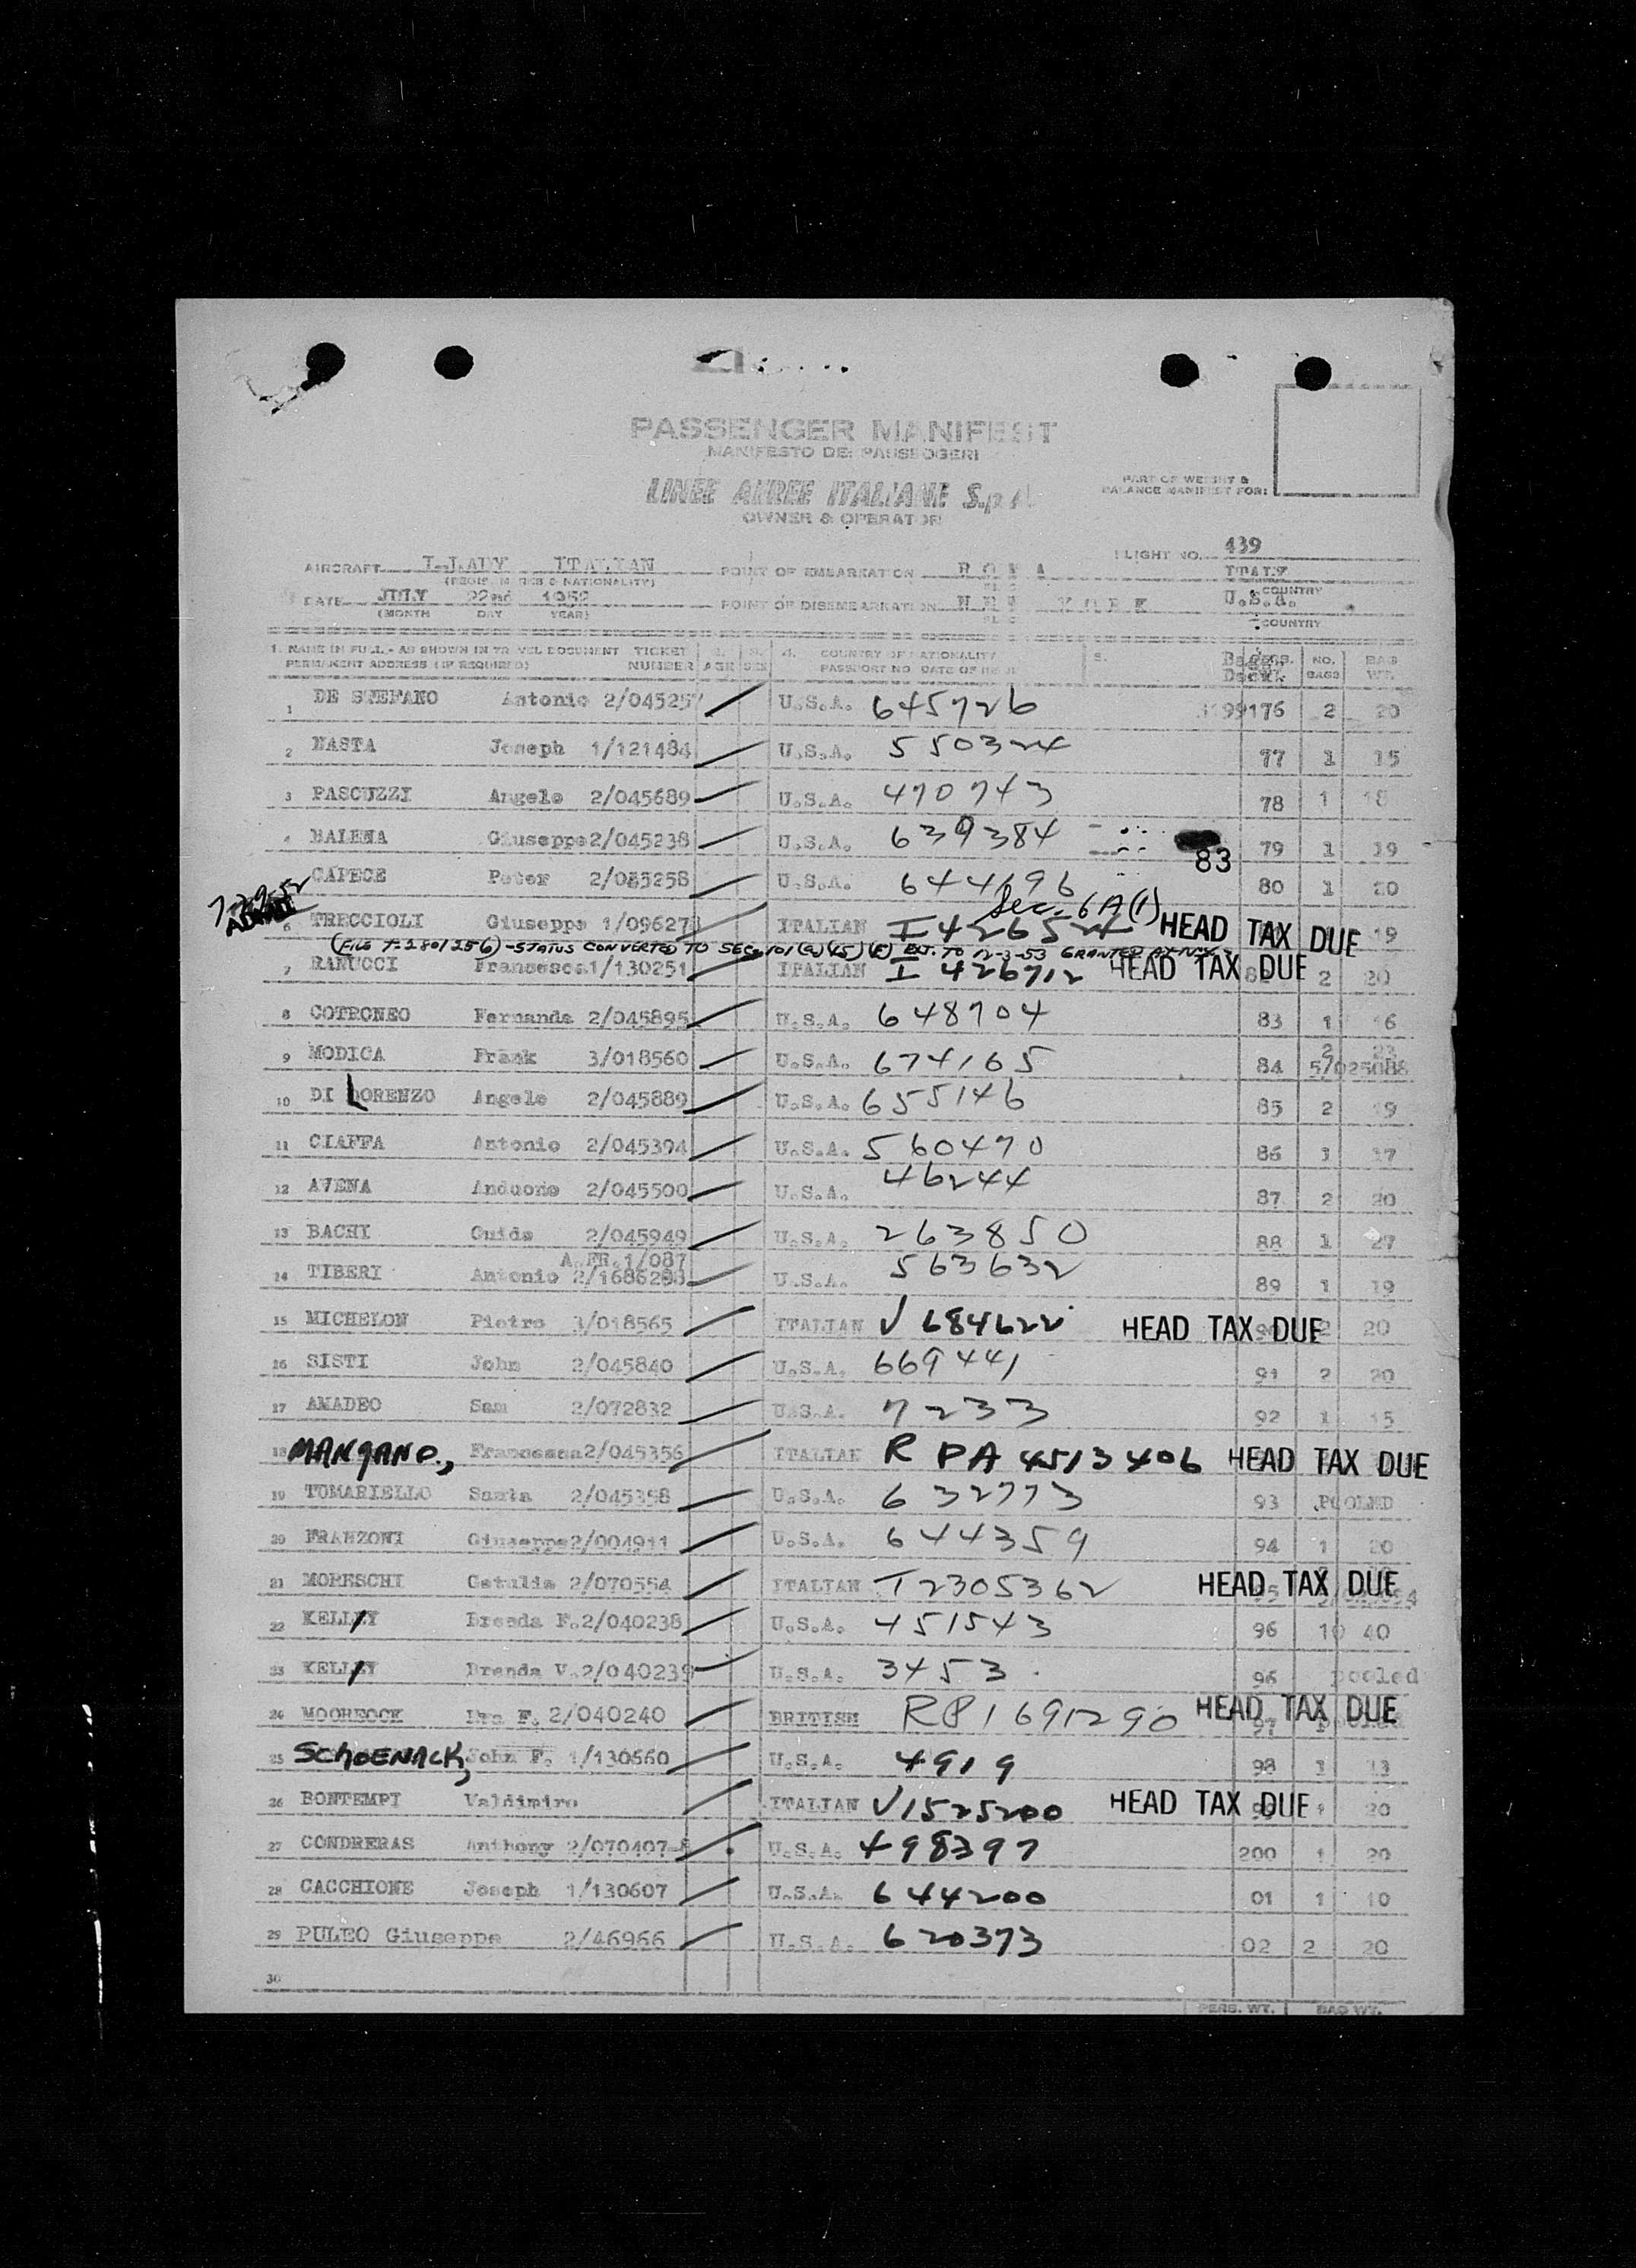 PASSENGER MANIFEST
MANIFESTO DEI PASSEGGERI
LINEE AEREE ITALIANE S.p.A.
OWNER & OPERATOR
PART OF WEIGHT &
BALANCE MANIFEST FOR:
FLIGHT NO. 439
AIRCRAFT I-LADY ITALIAN POINT OF EMBARKATION ROMA ITALY
(REGIS. MARKS & NATIONALITY) COUNTRY
DATE JULY 22nd 1952 POINT OF DISEMBARKATION NEW YORK U.S.A.
(MONTH DAY YEAR) COUNTRY
1. NAME IN FULL - AS SHOWN IN TRAVEL DOCUMENT TICKET 2. 3. 4. COUNTRY OF NATIONALITY 5. NO. BAG
PERMANENT ADDRESS (IF REQUIRED) NUMBER AGE SEX PASSPORT NO. DATE OF BAGS WT.
1 DE STEFANO Antonio 2/045257 U.S.A. 645726 99176 2 20
2 NASTA Joseph 1/121484 U.S.A. 550324 77 1 15
3 PASCUZZI Angelo 2/045689 U.S.A. 470743 78 1 18
4 BALENA Giuseppe 2/045238 U.S.A. 639384 83 79 1 19
CAPECE Peter 2/045258 U.S.A. 644196 80 1 20
7-22-52 Sec. 6A(1)
6 TRECCIOLI Giuseppe 1/096271 ITALIAN I 426524 HEAD TAX DUE 19
(FILE T-2801256) - STATUS CONVERTED TO SEC. 101(a)(15)(F) EXT. TO 12-3-53 GRANTED AT NYC
7 RANUCCI Francesco 1/130251 ITALIAN I 426712 HEAD TAX DUE 2 20
8 COTRONEO Fernanda 2/045895 U.S.A. 648704 83 1 16
9 MODICA Frank 3/018560 U.S.A. 674165 84 2 23
5/025088
10 DI LORENZO Angelo 2/045889 U.S.A. 655146 85 2 19
11 CIAFFA Antonio 2/045394 U.S.A. 560470 86 1 17
12 AVENA Anduono 2/045500 U.S.A. 46244 87 2 20
13 BACHI Guido 2/045949 U.S.A. 263850 88 1 27
A.FR.1/087
14 TIBERI Antonio 2/1686288 U.S.A. 563632 89 1 19
15 MICHELON Pietro 3/018565 ITALIAN V 684622 HEAD TAX DUE 2 20
16 SISTI John 2/045840 U.S.A. 669441 91 2 20
17 AMADEO Sam 2/072832 U.S.A. 7233 92 1 15
18 MANGANO, Francesca 2/045356 ITALIAN R PA 4513406 HEAD TAX DUE
19 TOMARIELLO Santa 2/045358 U.S.A. 632773 93 POOLED
20 FRANZONI Giuseppe 2/004911 U.S.A. 644359 94 1 20
21 MORESCHI Getulia 2/070554 ITALIAN I2305362 HEAD TAX DUE
22 KELLY Breeda F. 2/040238 U.S.A. 451543 96 10 40
23 KELLY Brenda V. 2/040239 U.S.A. 3453 96 pooled
24 MOORCOCK F. 2/040240 BRITISH RP1691290 HEAD TAX DUE
25 SCHOENACK, John F. 1/130660 U.S.A. 4919 98 1 13
26 BONTEMPI Valdimiro ITALIAN V1525200 HEAD TAX DUE 1 20
27 CONDRERAS Anthony 2/070407-8 U.S.A. 498397 200 1 20
28 CACCHIONE Joseph 1/130607 U.S.A. 644200 01 1 10
29 PULEO Giuseppe 2/46966 U.S.A. 620373 02 2 20
30
PERS. WT. BAG WT.